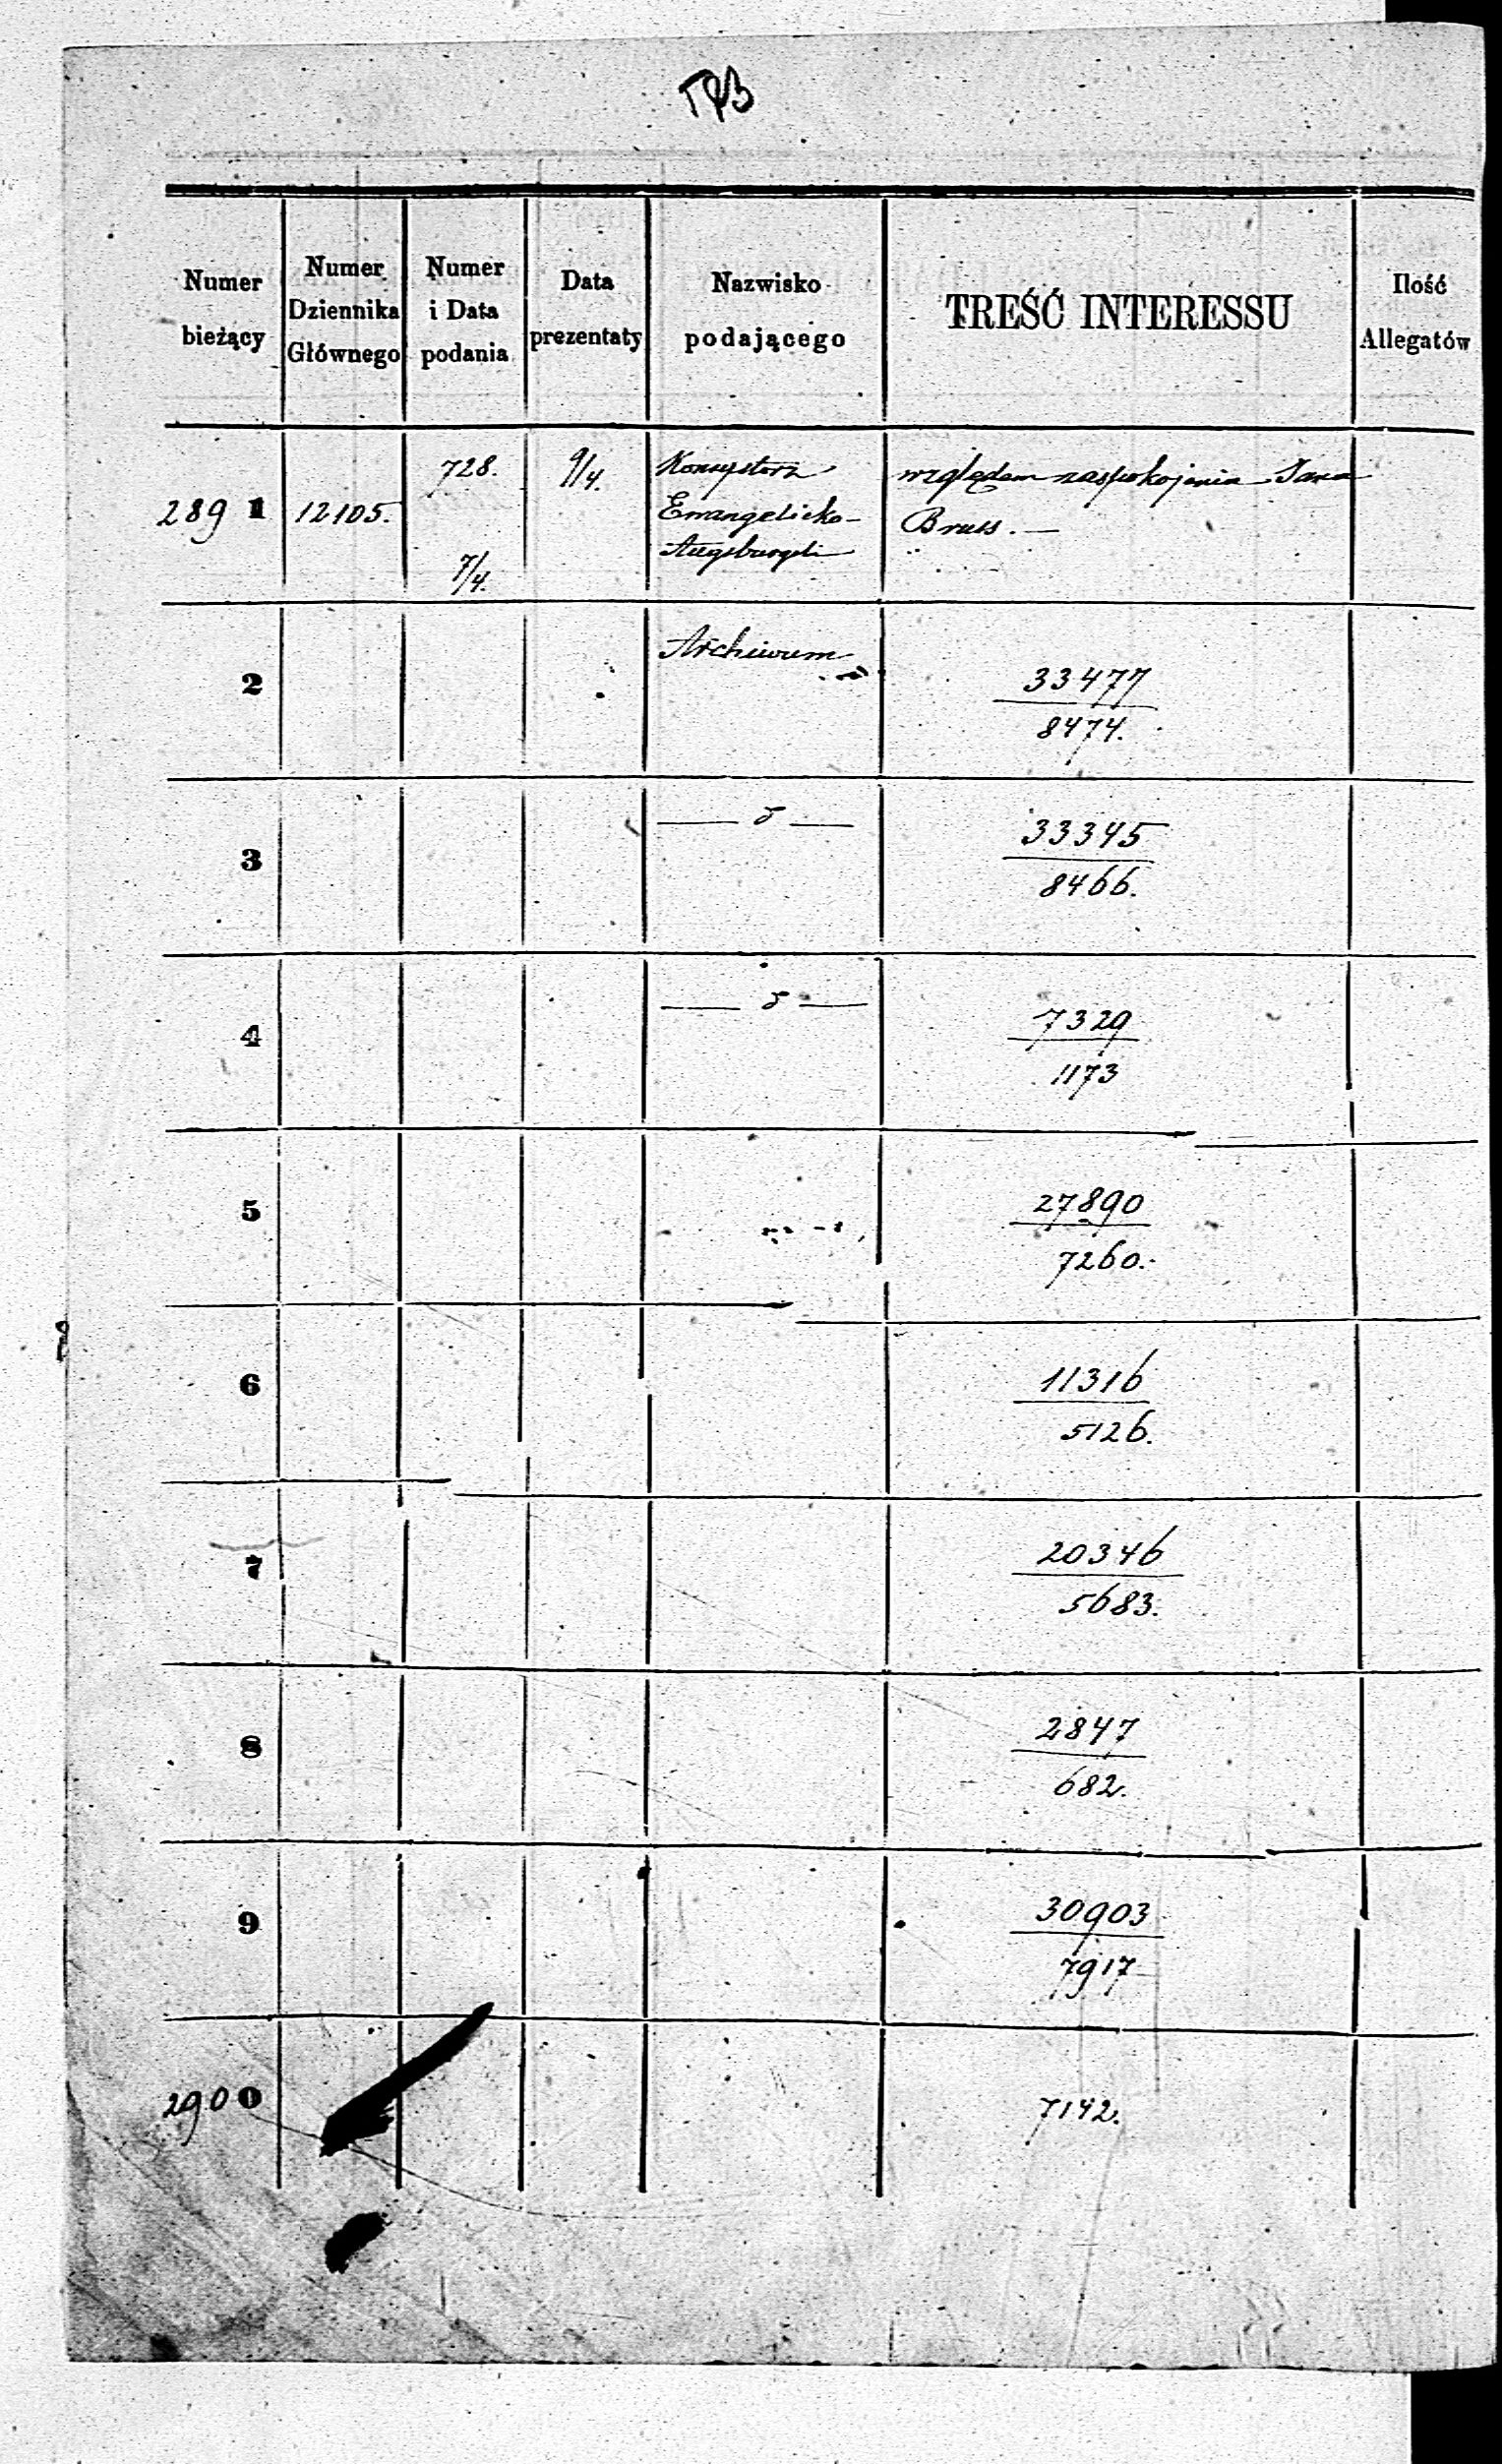 Numer bieżący
Numer Dziennika Głównego
Numer i Data podania
Data prezentaty
Nazwisko podającego
TREŚĆ INTERESSU
Ilość Allegatów
289 1
12105.
728.
7/4.
9/4.
Konsystorz
Ewangelicko-
Augsburski
względem zaspokojenia Jana
Bruss. —
2
Archiwum
33477
8474.
3
33345
8466.
4
7329
1173
5
27890
7260.
6
11316
5126.
7
20346
5683.
8
2847
682.
9
30903
7917
290 0
7142.